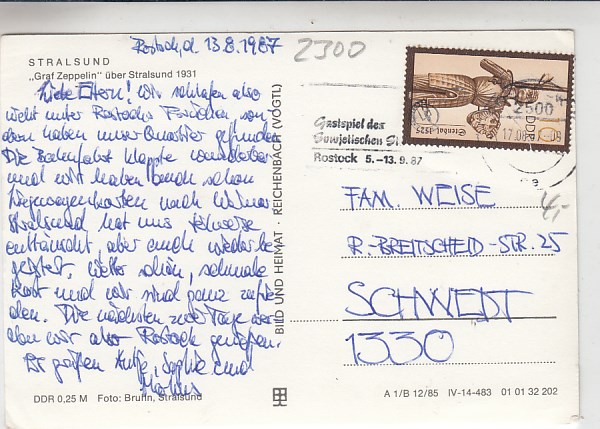 Rostock, d. 13.8.1987
2300
STRALSUND
„Graf Zeppelin" über Stralsund 1931
Liebe Eltern! Wir schlafen also
nicht unter Rostocks Brücken, son-
dern haben unser Quartier gefunden.
Die Bahnfahrt klappte wunderbar
und wir haben auch schon
nach Wismar
Stralsund hat uns teilweise
enttäuscht, aber auch wieder be-
geistert, Wetter schön, schmale
Kost und wir sind ganz zufrie-
den. Die nächsten zwei Tage wer-
den wir also Rostock genießen.
Es grüßen Antje, Sophie und
DDR 0,25 M Foto: Bruhn, Stralsund
BILD UND HEIMAT · REICHENBACH (VOGTL)
Gastspiel des
Sowjetischen
Rostock 5.–13.9.87
2500
17.08.
DDR
Stendal · 1525
4,-
FAM. WEISE
R.-BREITSCHEID-STR. 25
SCHWEDT
1330
A 1/B 12/85 IV-14-483 01 01 32 202